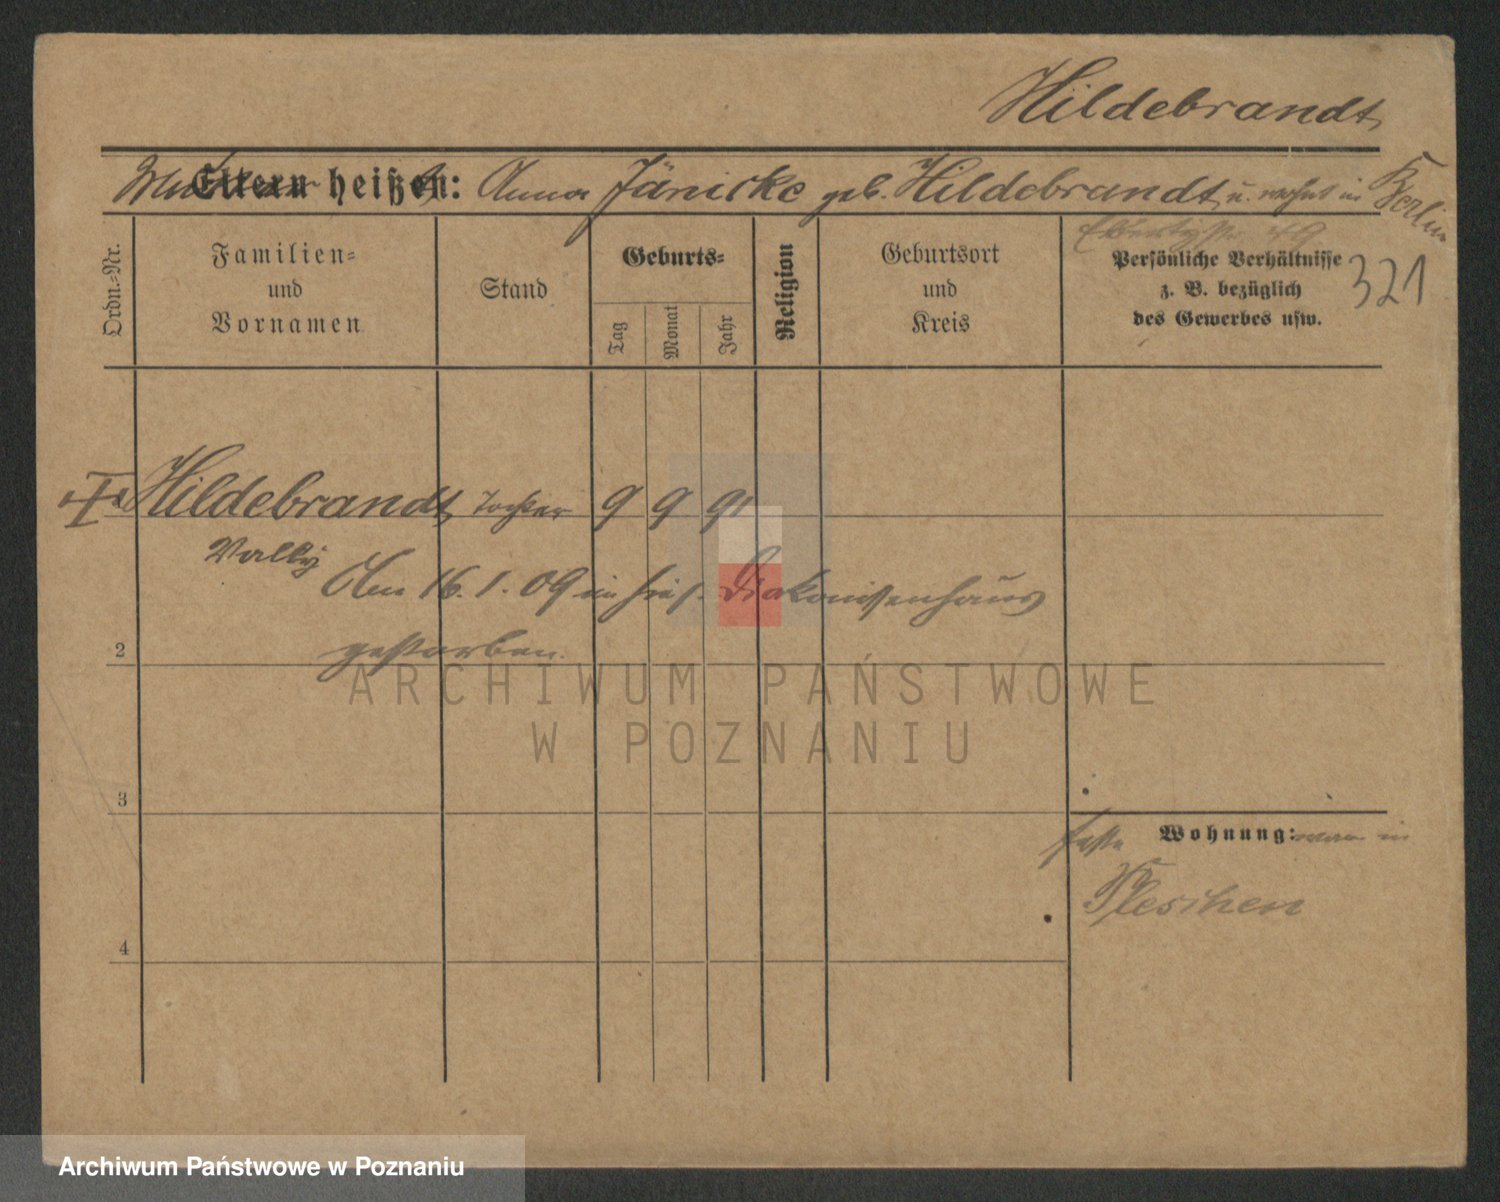 Hildebrandt
Mutter
Eltern heißen: Anna Jänicke geb. Hildebrandt u. wohnt in Berlin
49
321
Ordn.-Nr.
Familien-
und
Vornamen
Stand
Geburts-
Tag
Monat
Jahr
Religion
Geburtsort
und
Kreis
Persönliche Verhältnisse
z. B. bezüglich
des Gewerbes usw.
Hildebrandt Tochter 9 9 91
Vally
Am 16.1.09 im hies. Diakonissenhaus
gestorben.
2
3
4
Wohnung: war in
Pleschen
ARCHIWUM PAŃSTWOWE
W POZNANIU
Archiwum Państwowe w Poznaniu